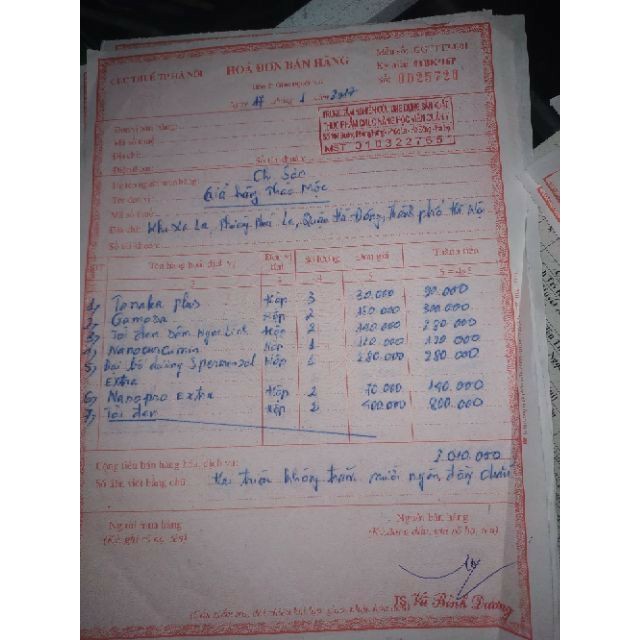 CỤC THUẾ TP HÀ NỘI
HOÁ ĐƠN BÁN HÀNG
Số: 0025720
Ngày 17 tháng 1 năm 2017
Đơn vị bán hàng:
Mã số thuế:
Địa chỉ:
Điện thoại:
Số tài khoản:
MST: 010322765
Họ tên người mua hàng: Chị Sào
Tên đơn vị: Giá hàng Thảo Mộc
Mã số thuế:
Địa chỉ: Khu Xa La, Phường Phúc La, Quận Hà Đông, Thành phố Hà Nội
Số tài khoản:
STT Tên hàng hoá, dịch vụ Đơn vị tính Số lượng Đơn giá Thành tiền
2 3 4 5 6 = 4x5
1, Tanaka plus Hộp 3 30.000 90.000
2, Gamosa Hộp 2 150.000 300.000
3, Tỏi đen Sâm Ngọc Linh Hộp 2 140.000 280.000
4, Nanocurcumin Hộp 1 120.000 120.000
5, Đại bổ dưỡng Spermanol Hộp 1 280.000 280.000
Extra
6, Nanopro Extra Hộp 2 70.000 140.000
7, Tỏi đen Hộp 2 400.000 800.000
Cộng tiền bán hàng hoá, dịch vụ: 2.010.000
Số tiền viết bằng chữ: Hai triệu không trăm mười ngàn đồng chẵn
Người mua hàng
(Ký, ghi rõ họ, tên)
Người bán hàng
(Ký, đóng dấu, ghi rõ họ, tên)
TS. Vũ Bình Dương